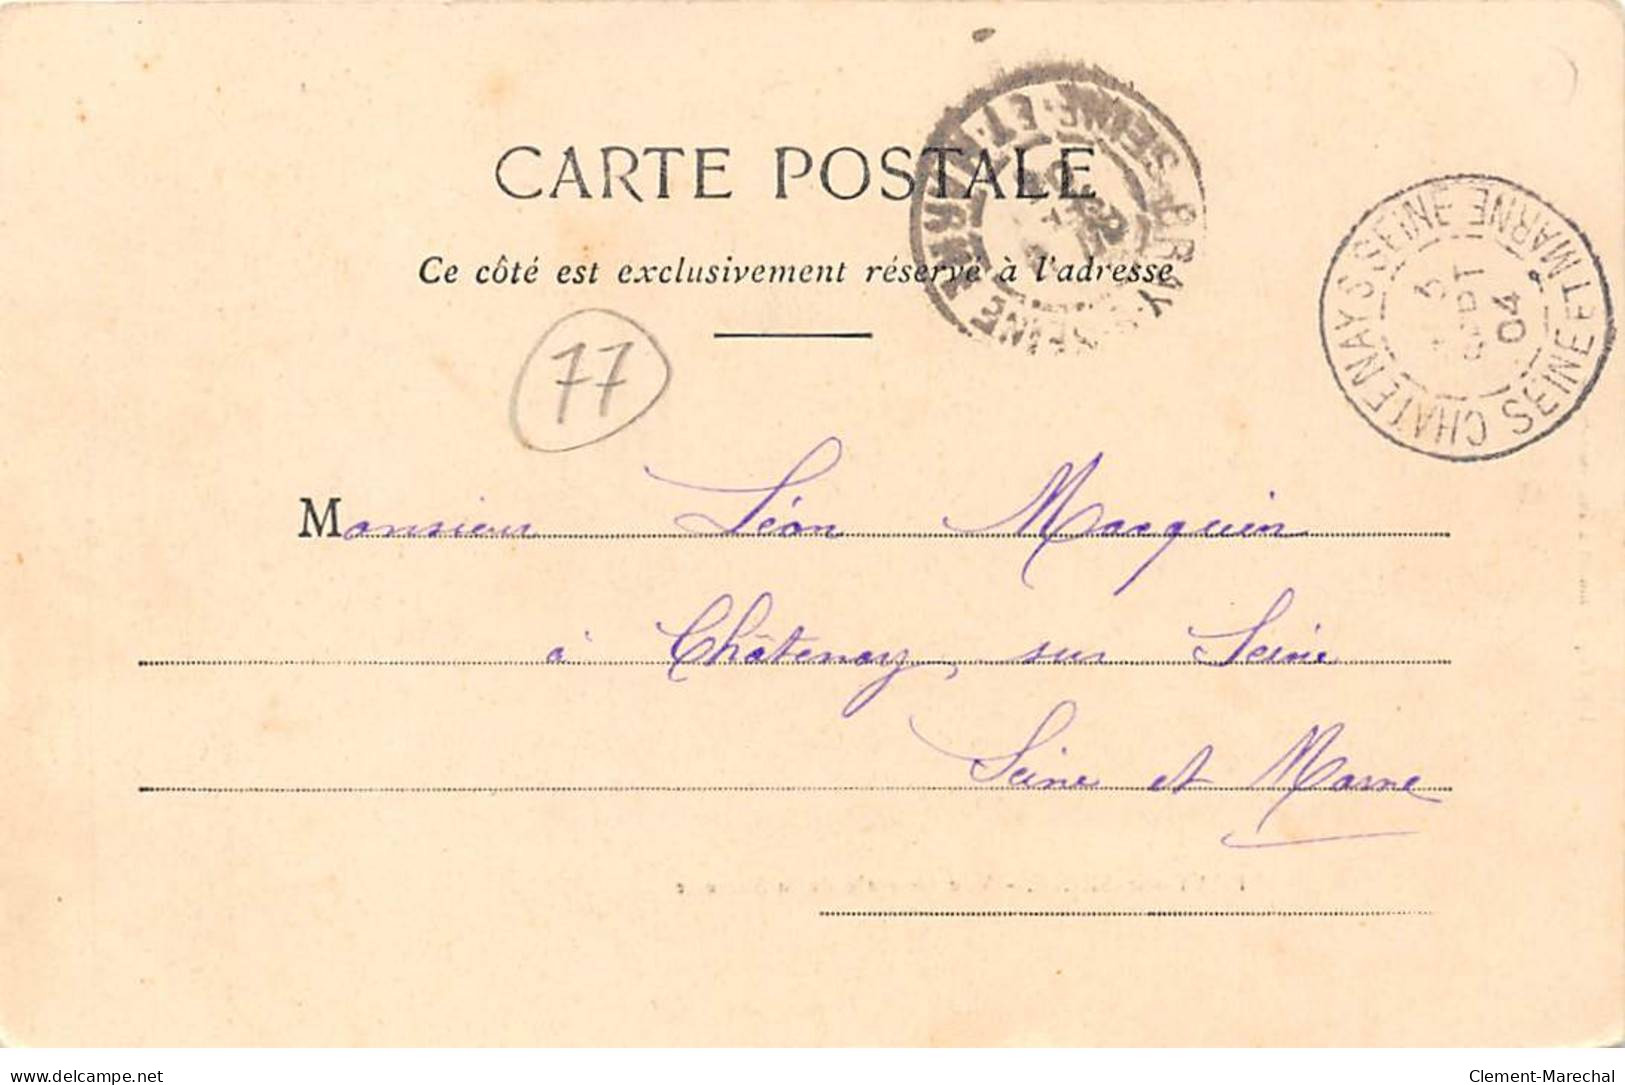 CARTE POSTALE
Ce côté est exclusivement réservé à l'adresse
BRAY-S-SEINE SEINE-ET-
CHATENAY S SEINE SEINE ET MARNE
04
77
Monsieur Léon Macquin
à Châtenay, sur Seine
Seine et Marne
delcampe.net
Clement-Marechal